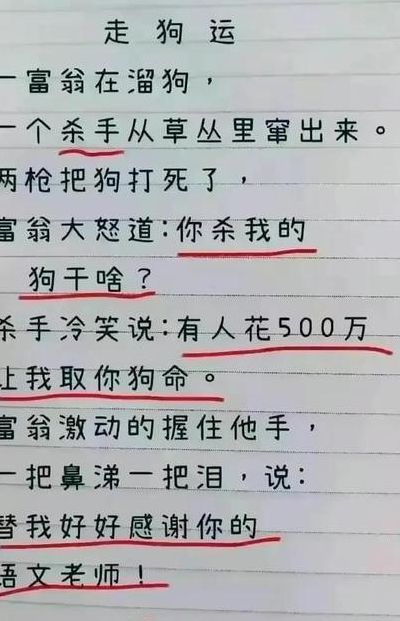 走狗运
一富翁在溜狗，
一个杀手从草丛里窜出来。
两枪把狗打死了，
富翁大怒道：你杀我的
狗干啥？
杀手冷笑说：有人花500万
让我取你狗命。
富翁激动的握住他手，
一把鼻涕一把泪，说：
替我好好感谢你的
语文老师！